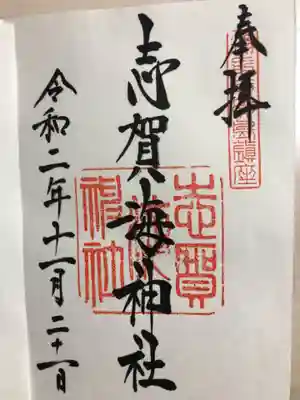 奉拝
鎮座
志賀海神社
志賀海神社
令和二年十一月二十一日